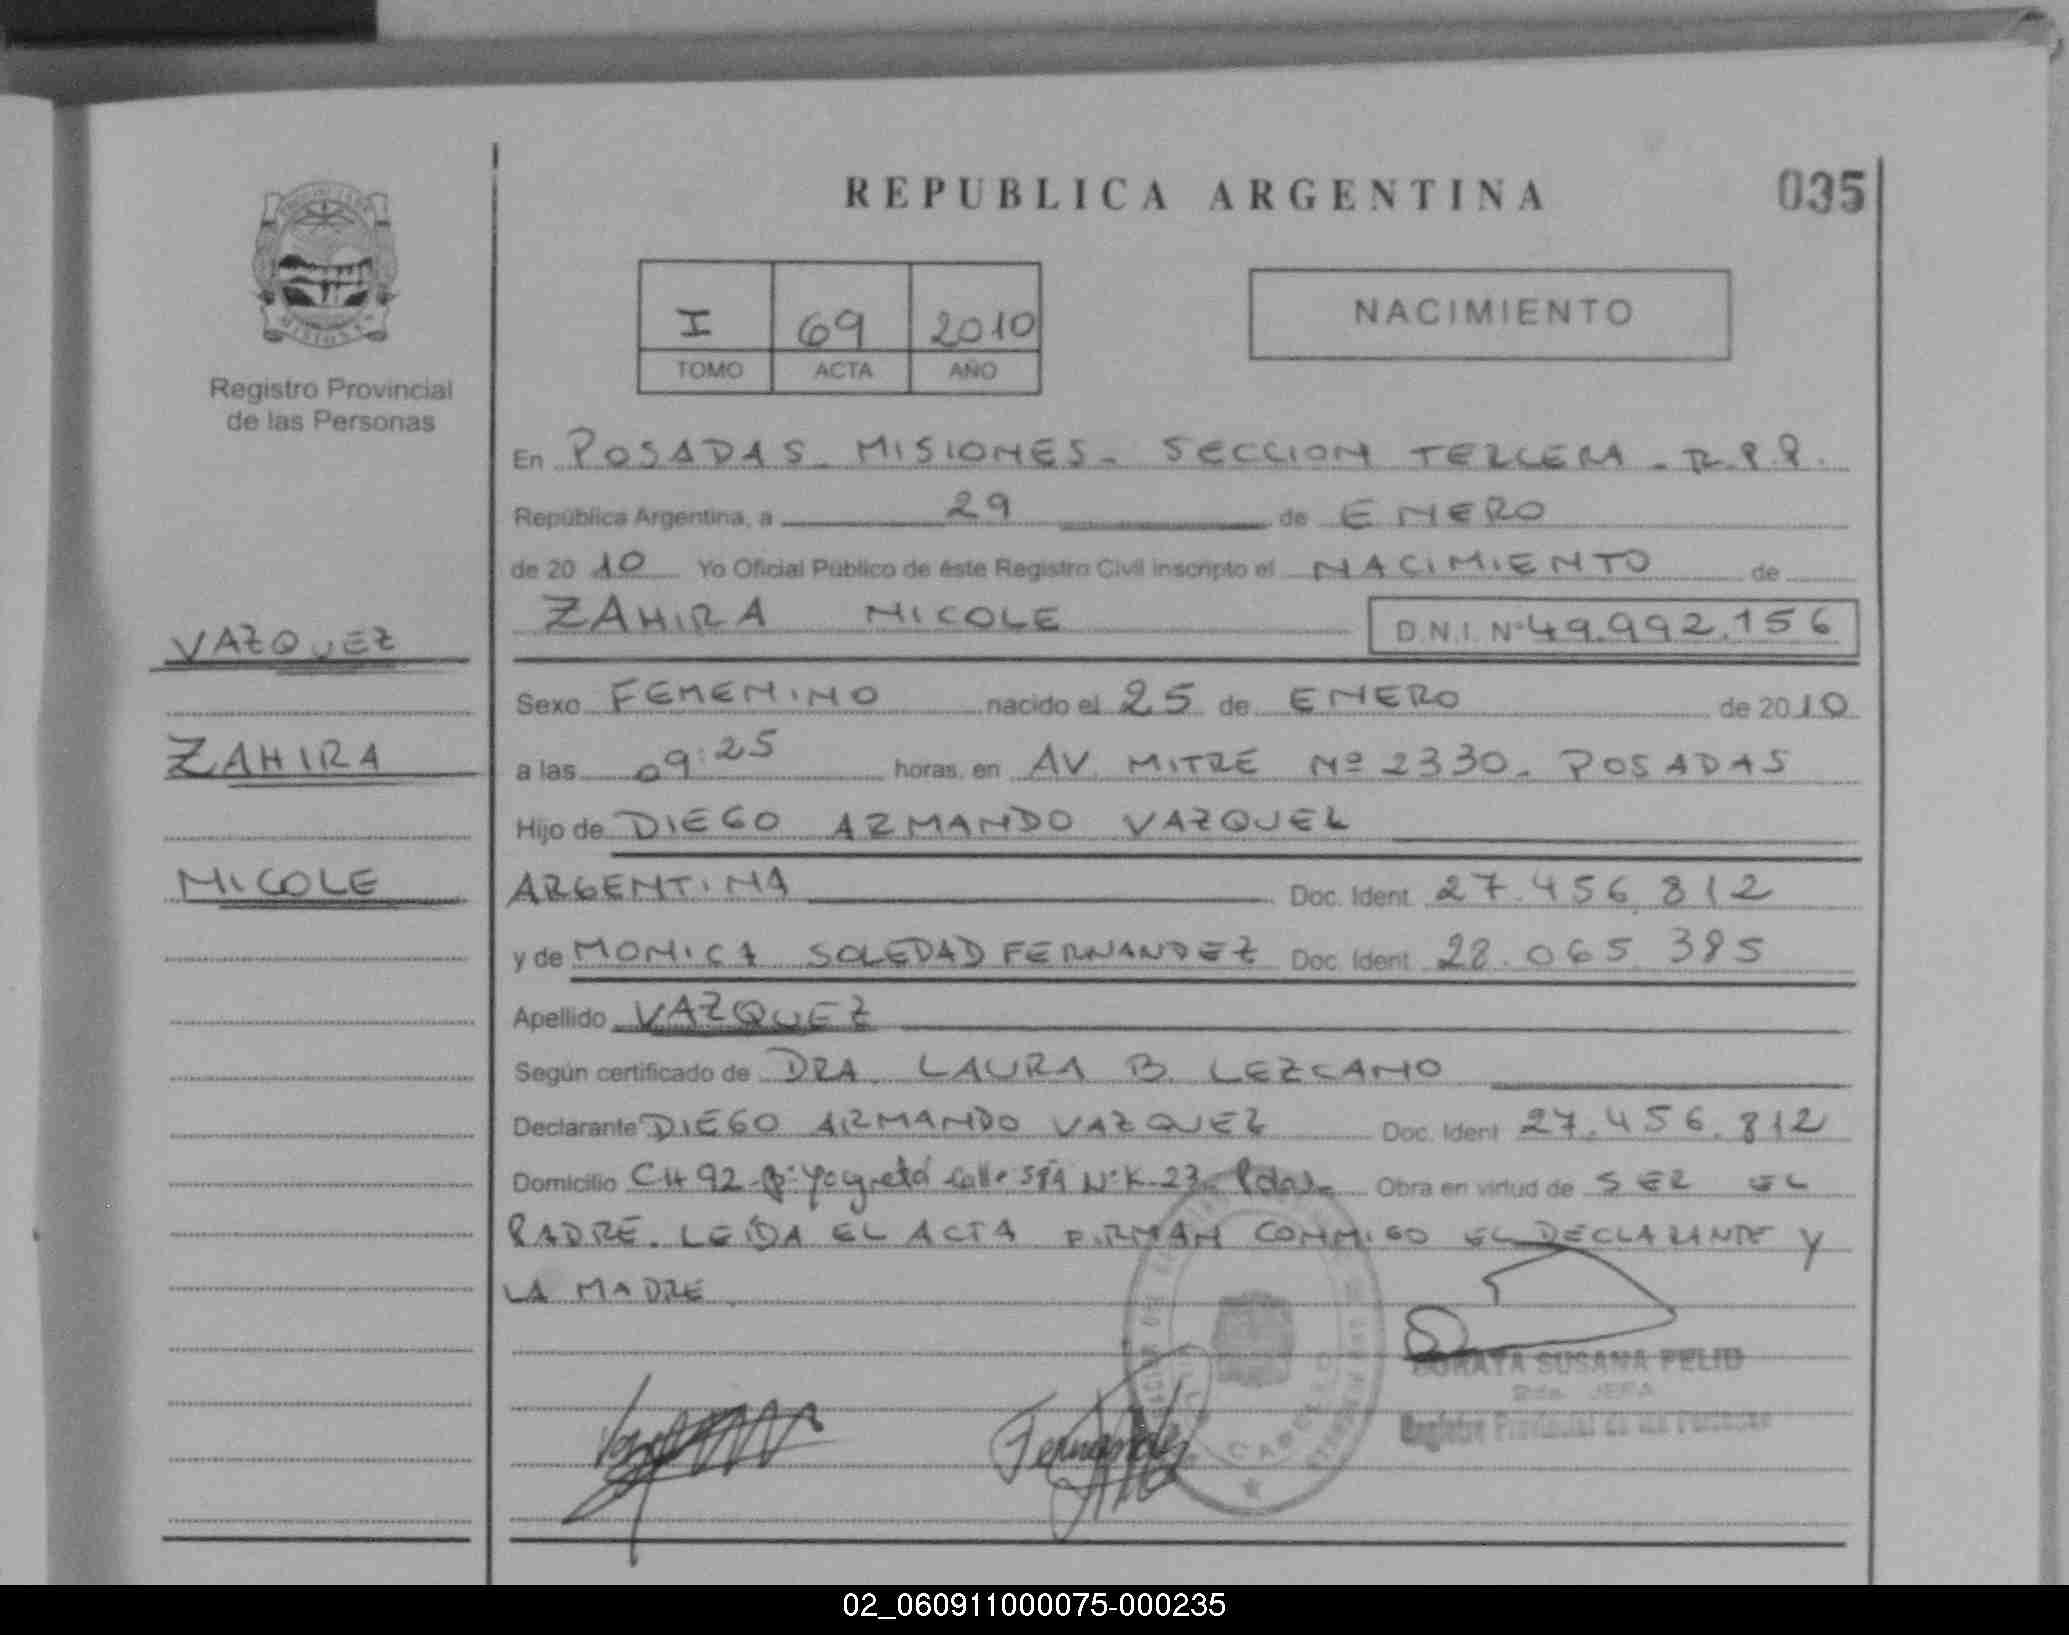 REPUBLICA ARGENTINA
035
I 69 2010
TOMO ACTA AÑO
NACIMIENTO
Registro Provincial
de las Personas
En POSADAS - MISIONES - SECCION TERCERA - R.P.P.
República Argentina, a 29 de ENERO
de 20 10 Yo Oficial Público de éste Registro Civil inscripto el NACIMIENTO de
ZAHIRA NICOLE D.N.I. Nº 49.992.156
VAZQUEZ
ZAHIRA
NICOLE
Sexo FEMENINO nacido el 25 de ENERO de 2010
a las 09:25 horas, en AV. MITRE Nº 2330 - POSADAS
Hijo de DIEGO ARMANDO VAZQUEZ
ARGENTINA Doc. Ident. 27.456.812
y de MONICA SOLEDAD FERNANDEZ Doc. Ident. 28.065.385
Apellido VAZQUEZ
Según certificado de DRA. LAURA B. LEZCANO
Declarante DIEGO ARMANDO VAZQUEZ Doc. Ident. 27.456.812
Domicilio CH 92 - Bº Yacyretá calle Nº K-23 - Pdas - Obra en virtud de SER EL
PADRE. LEIDA EL ACTA FIRMAN CONMIGO EL DECLARANTE Y
LA MADRE
SUSANA
JEFA
Registro Provincial de las Personas
Fernandez
02_060911000075-000235